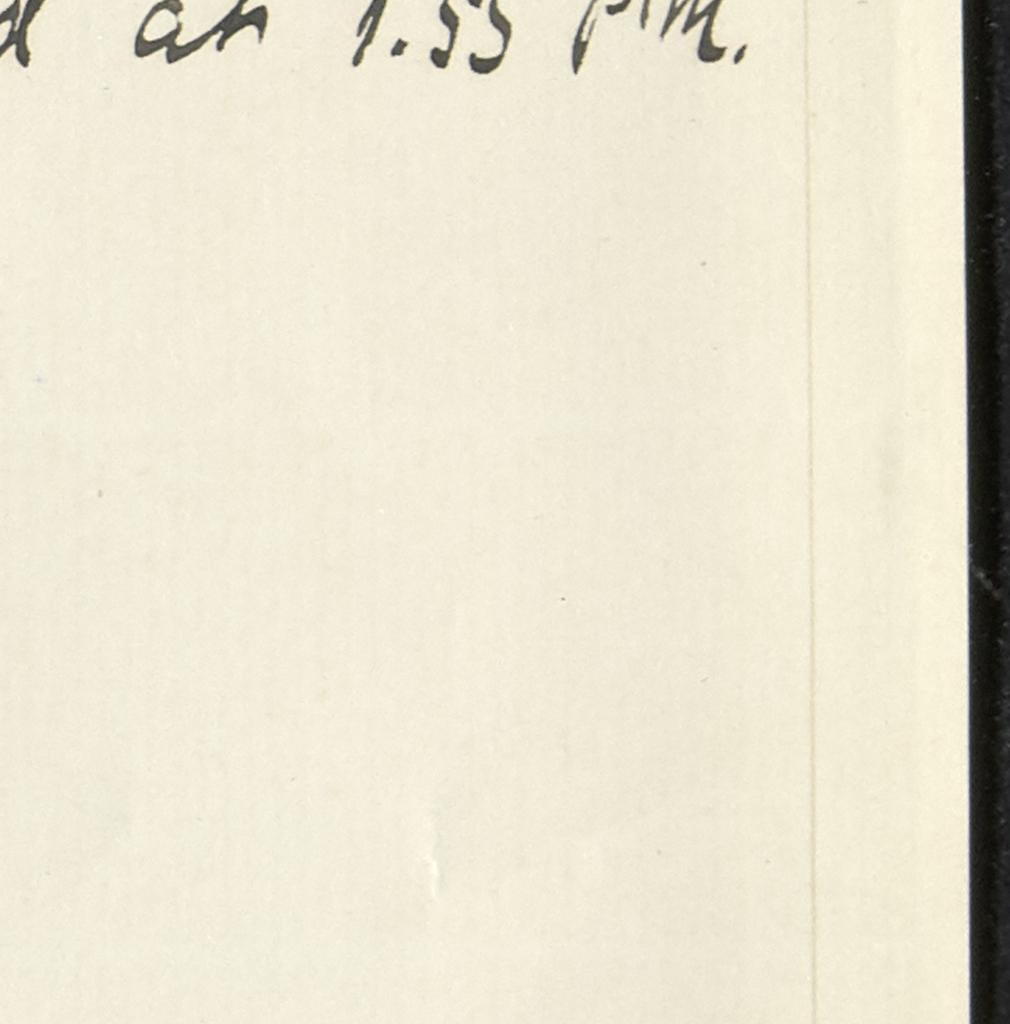 d at 1.55 p.m.